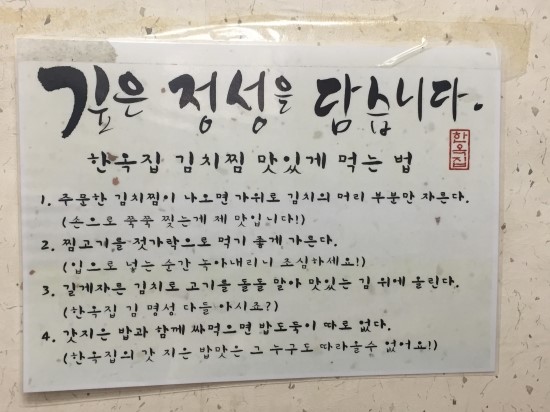 깊은 정성을 담습니다.
한옥집
한옥집 김치찜 맛있게 먹는 법
1. 주문한 김치찜이 나오면 가위로 김치의 머리 부분만 자른다.
(손으로 쭉쭉 찢는게 제 맛입니다!)
2. 찜고기을 젓가락으로 먹기 좋게 가른다.
(입으로 넣는 순간 녹아내리니 조심하세요!)
3. 길게자른 김치로 고기을 돌돌 말아 맛있는 김 위에 올린다.
(한옥집 김 명성 다들 아시죠?)
4. 갓지은 밥과 함께 싸먹으면 밥도둑이 따로 없다.
(한옥집의 갓 지은 밥맛은 그 누구도 따라올수 없어요!)